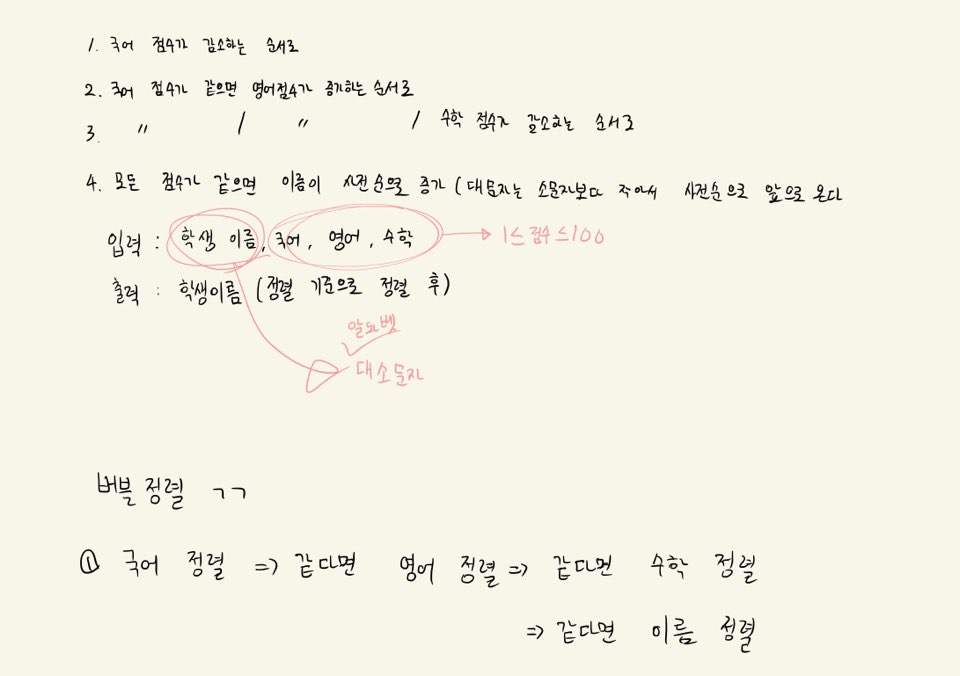 1. 국어 점수가 감소하는 순서로
2. 국어 점수가 같으면 영어점수가 증가하는 순서로
3. 〃 / 〃 / 수학 점수가 감소하는 순서로
4. 모든 점수가 같으면 이름이 사전순으로 증가 (대문자는 소문자보다 작아서 사전순으로 앞으로 온다
입력 : 학생 이름, 국어, 영어, 수학 → 1≤점수≤100
출력 : 학생이름 (정렬 기준으로 정렬 후)
알파벳
대소문자
버블 정렬 ㄱㄱ
① 국어 정렬 => 같다면 영어 정렬 => 같다면 수학 정렬
=> 같다면 이름 정렬